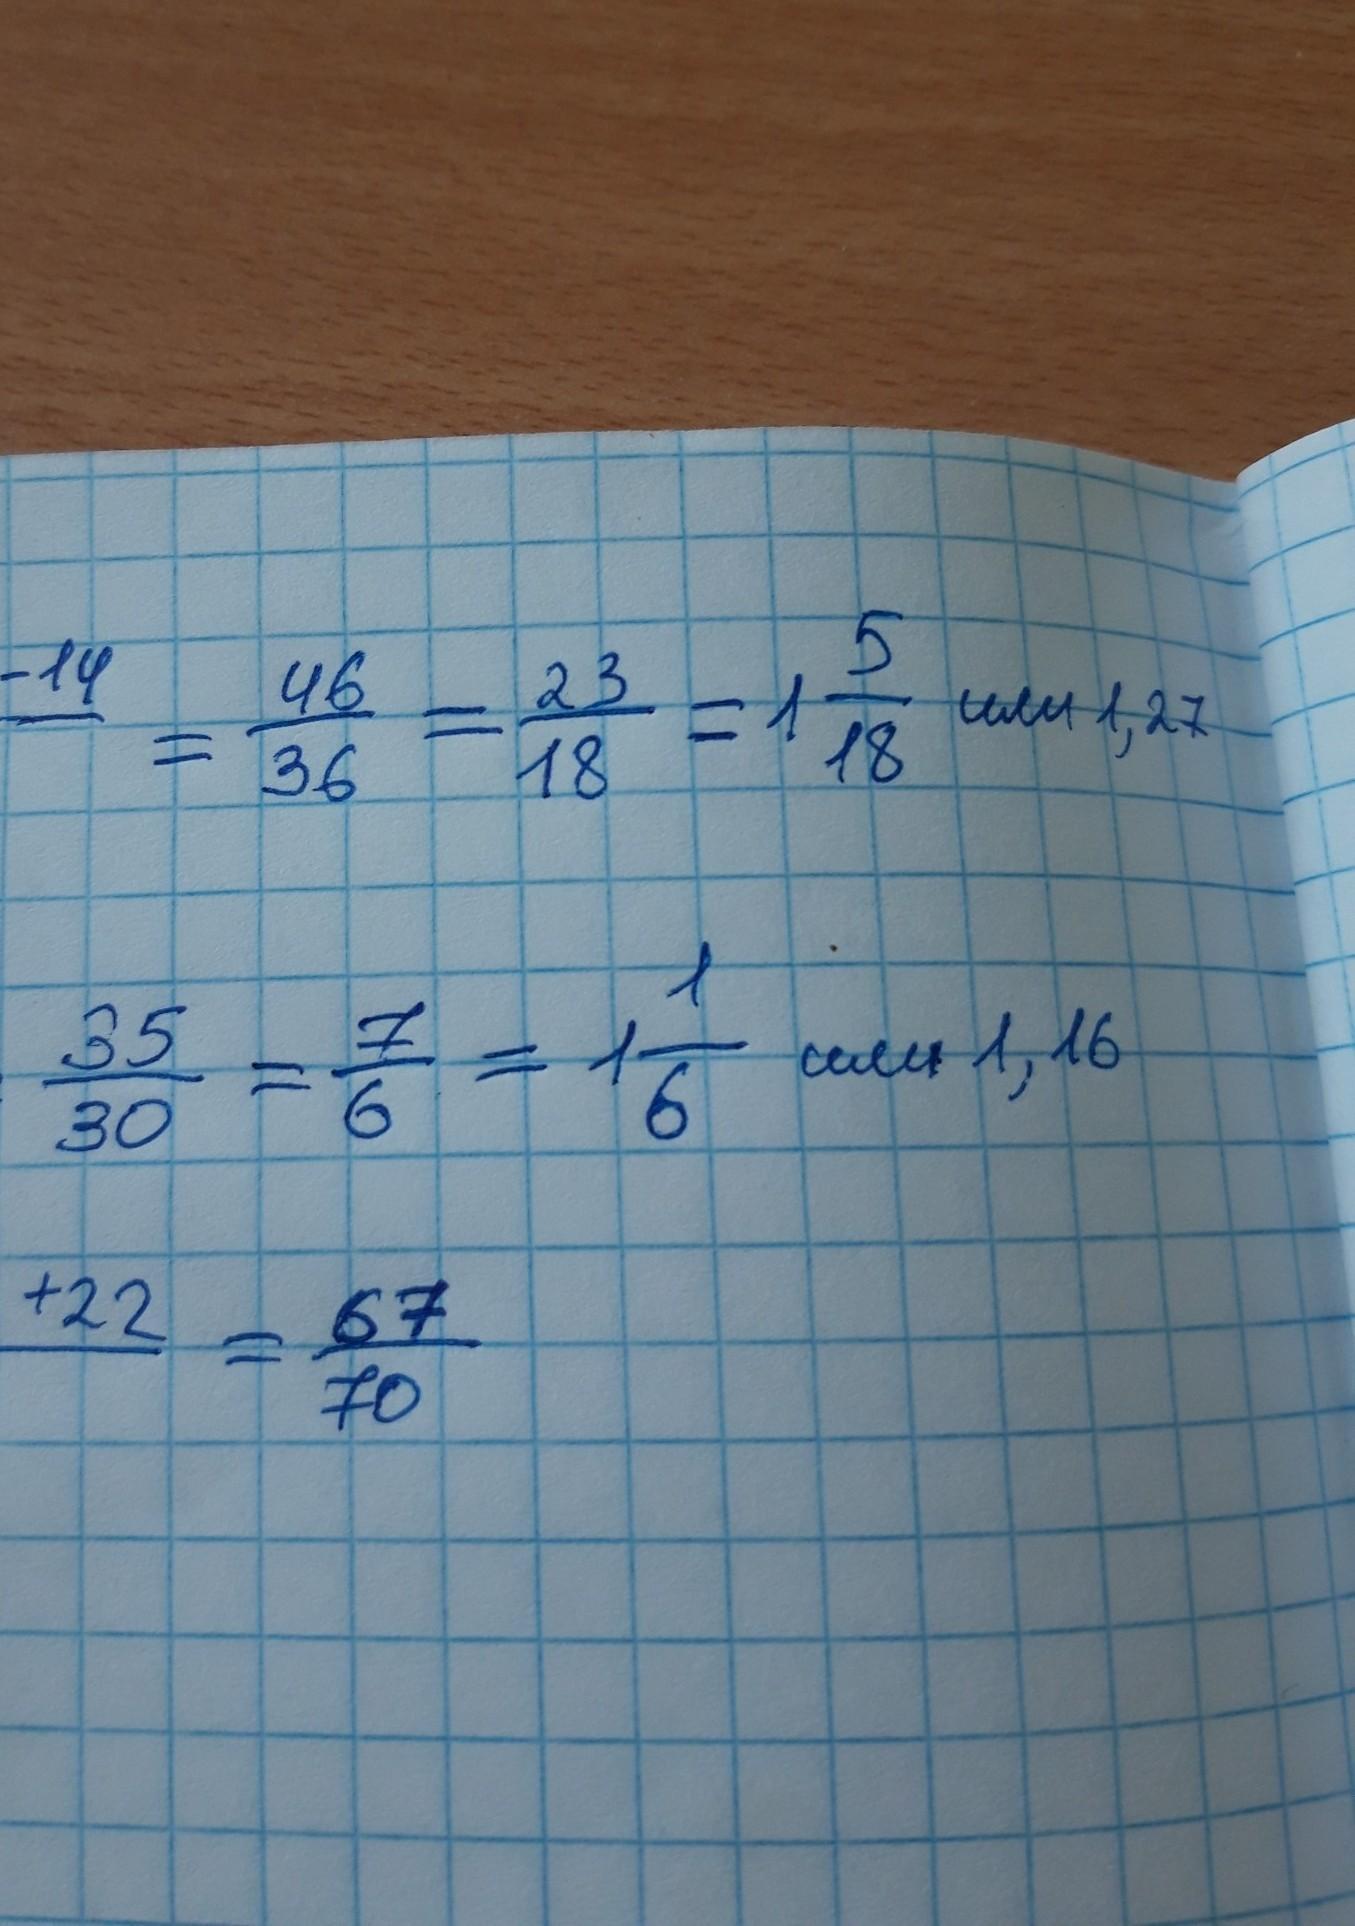 -14/ = 46/36 = 23/18 = 1 5/18 или 1,27
35/30 = 7/6 = 1 1/6 или 1,16
+22/ = 67/70